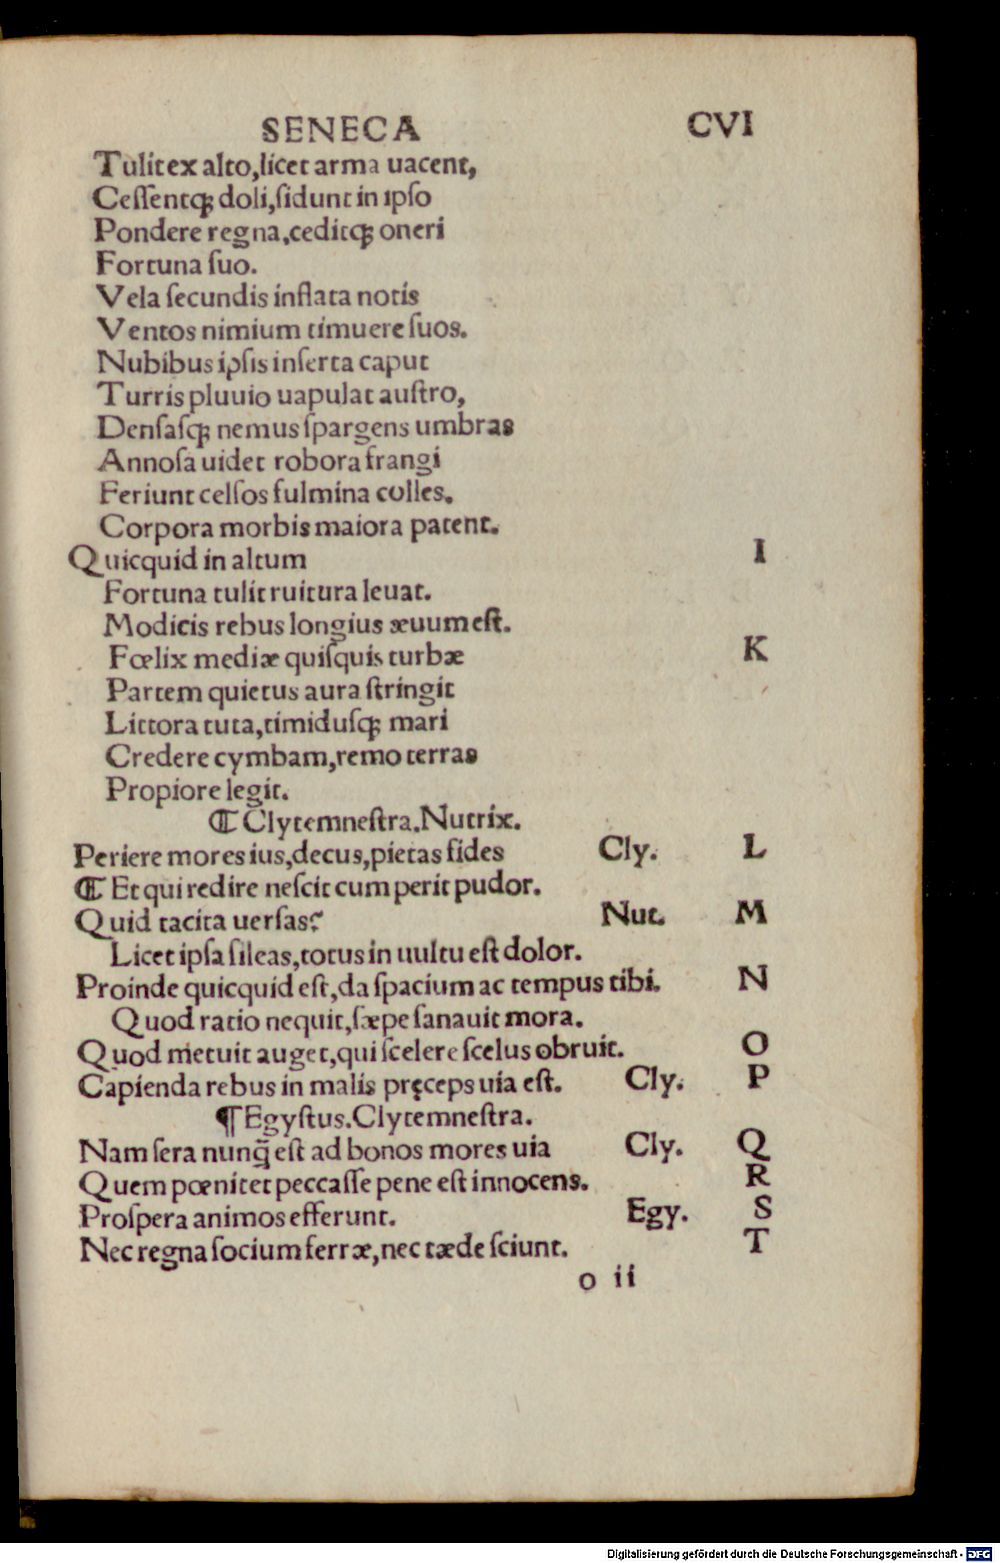 SENECA CVI
Tulit ex alto, licet arma uacent,
Cessentq; doli, sidunt in ipso
Pondere regna, ceditq; oneri
Fortuna suo.
Vela secundis inflata notis
Ventos nimium timuere suos.
Nubibus ipsis inserta caput
Turris pluuio uapulat austro,
Densasq; nemus spargens umbras
Annosa uidet robora frangi
Feriunt celsos fulmina colles.
Corpora morbis maiora patent.
Quicquid in altum I
Fortuna tulit ruitura leuat.
Modicis rebus longius æuum est.
Fœlix mediæ quisquis turbæ K
Partem quietus aura stringit
Littora tuta, timidusq; mari
Credere cymbam, remo terras
Propiore legit.
⸿ Clytemnestra. Nutrix.
Periere mores ius, decus, pietas fides Cly. L
⸿ Et qui redire nescit cum perit pudor.
Quid tacita uersas? Nut. M
Licet ipsa sileas, totus in uultu est dolor.
Proinde quicquid est, da spacium ac tempus tibi. N
Quod ratio nequit, sæpe sanauit mora.
Quod metuit auget, qui scelere scelus obruit. O
Capienda rebus in malis pręceps uia est. Cly. P
¶ Egystus. Clytemnestra.
Nam sera nunq̃ est ad bonos mores uia Cly. Q
Quem pœnitet peccasse pene est innocens. R
Prospera animos efferunt. Egy. S
Nec regna socium ferræ, nec tæde sciunt. T
o ii
Digitalisierung gefördert durch die Deutsche Forschungsgemeinschaft - DFG